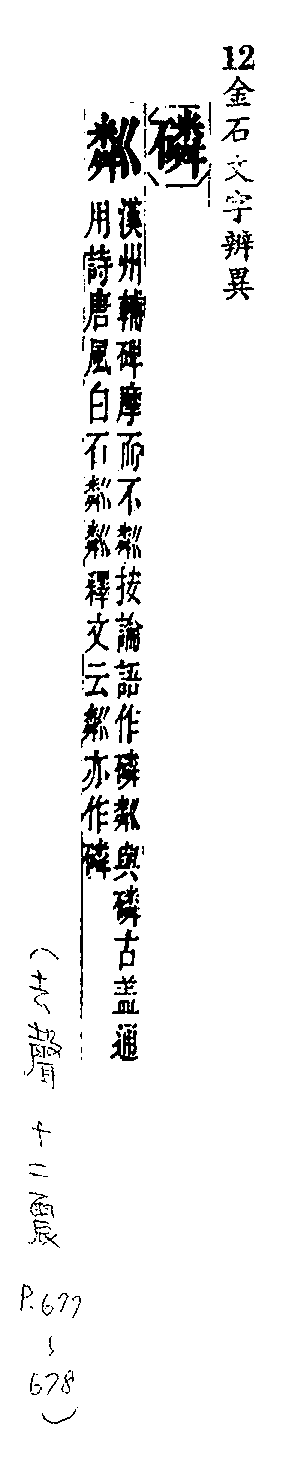 12金石文字辨異
磷
粼漢州輔碑摩而不粼按論語作磷粼與磷古盖通
用詩唐風白石粼粼釋文云粼亦作磷
(去聲 十二震 P.677~678)